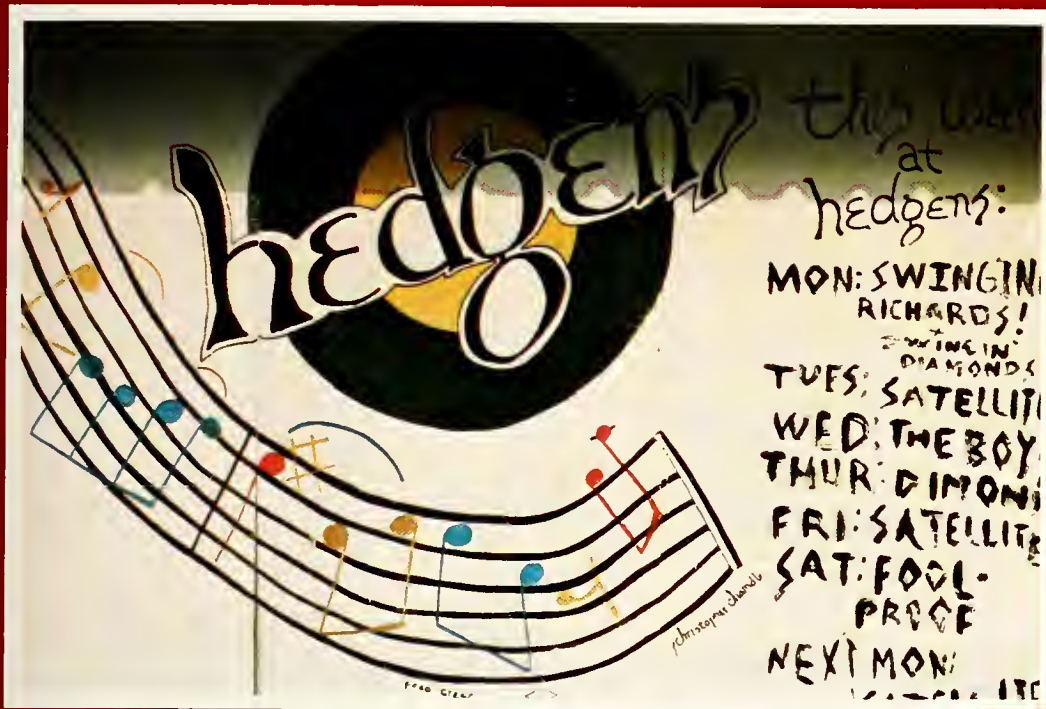 hedgens
this
at
hedgens:
MON: SWINGIN
RICHARDS!
+
SWINGIN'
DIAMONDS
TUES: SATELLITE
WED: THE BOY
THUR: DIMON
FRI: SATELLITE
SAT: FOOL-
PROOF
NEXT MON:
SATELLITE
christopher